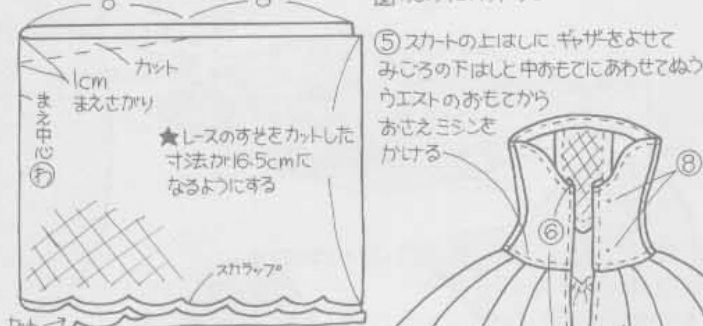 カット
1cm
まえさがり
まえ中心わ
★レースのすそをカットした
寸法が16.5cmに
なるようにする
スカラップ
カット→
⑤スカートの上はしに ギャザーをよせて
みごろの下はしと中おもてにあわせてぬう
ウエストのおもてから
おさえミシンを
かける
⑥
⑧